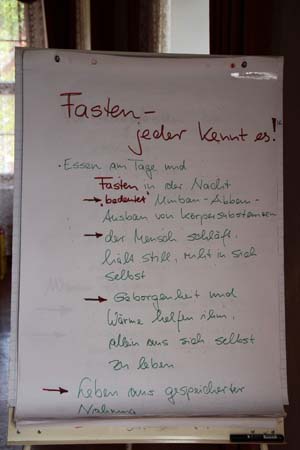 Fasten-
jeder kennt es!
Essen am Tage und
Fasten in der Nacht
→ "bedeutet" Umbau-Abbau-
Ausbau von Körpersubstanzen
→ der Mensch schläft.
hält still, ruht in sich
selbst
→ Gaborgenheit und
Wärme helfen ihm,
allein aus sich selbst
zu leben
→ Leben aus gespeicherter
Nahrung